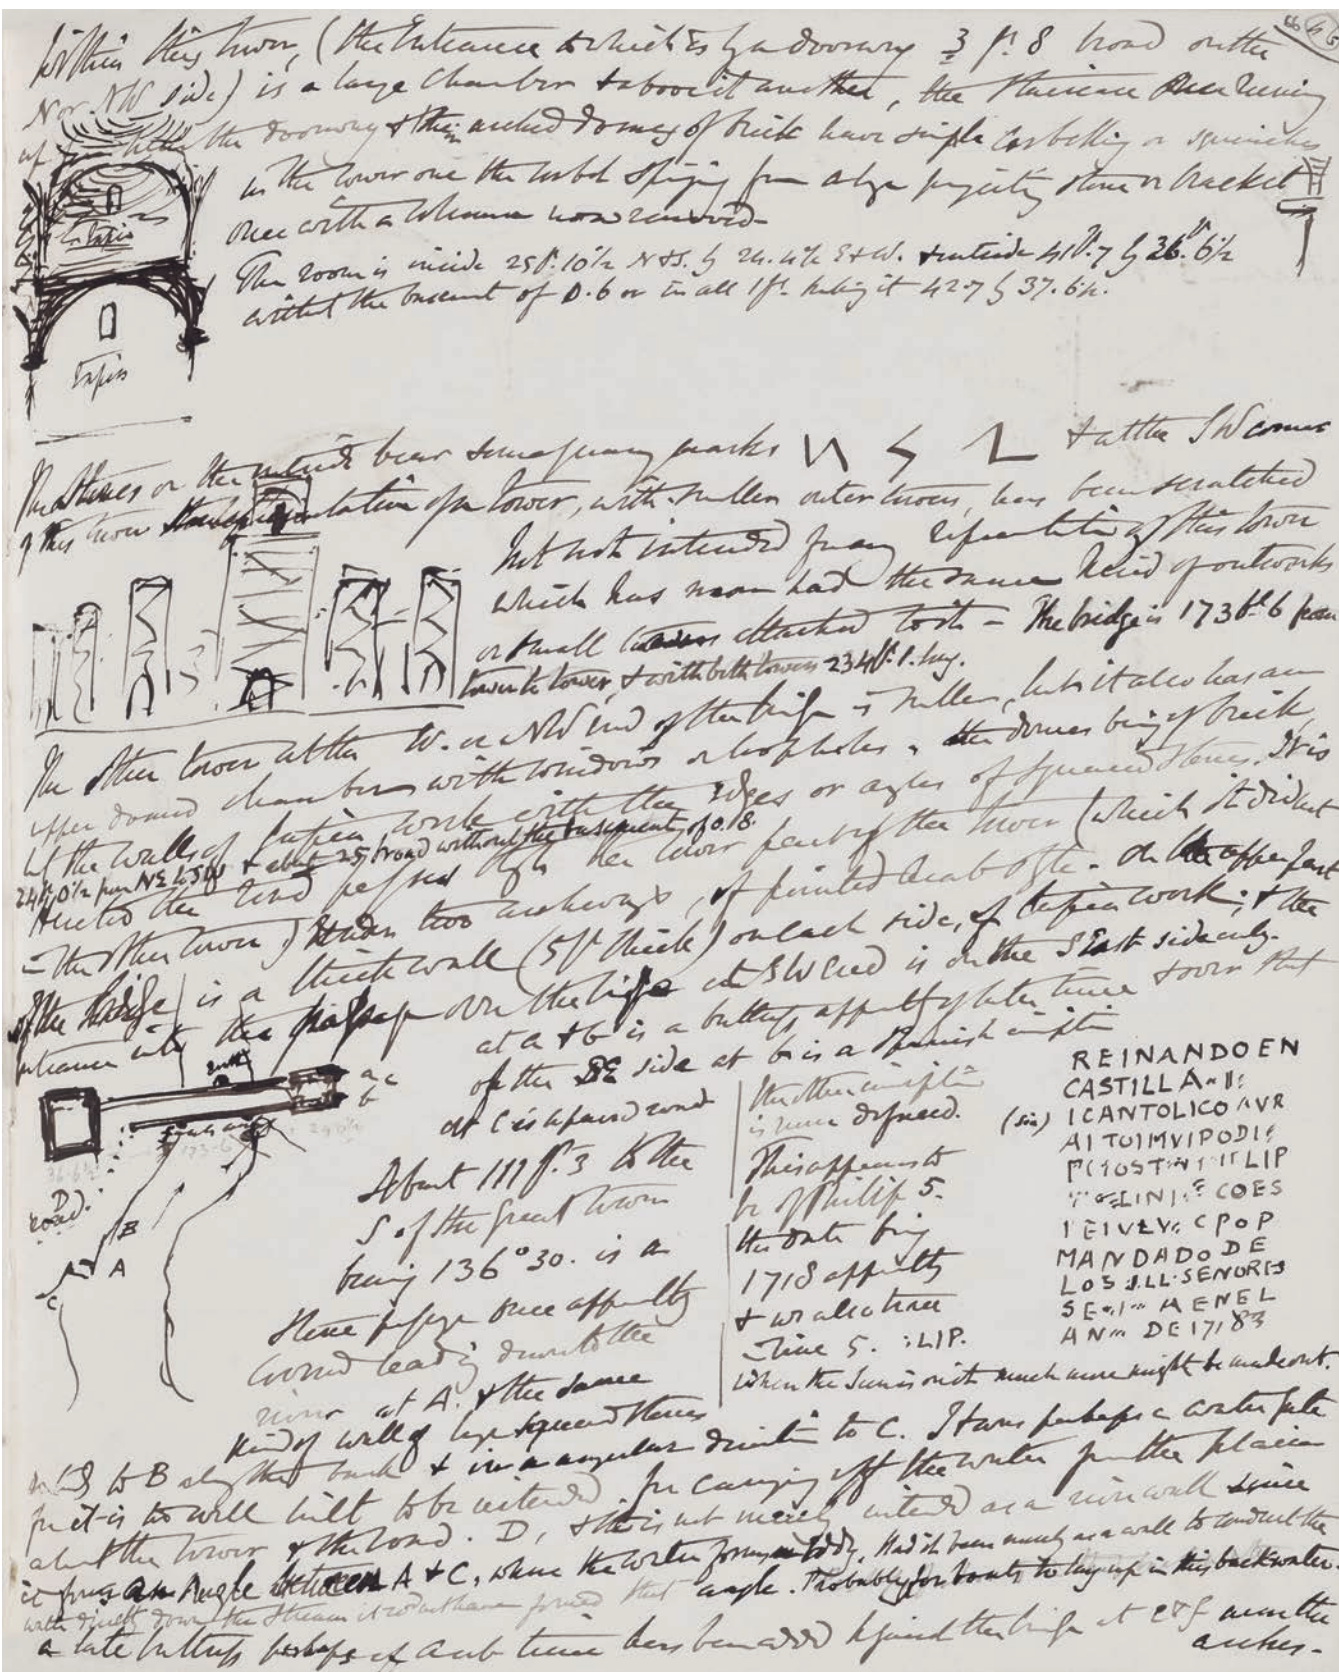 Within this tower, (the Entrance to which is by a doorway 3 ft. 8 broad on the
N or NW side) is a large Chamber & above it another, the Staircase once running
up from the doorway & the arched domes of brick have simple corbelling or squinches
in the lower one the corbel springing from a large projecting stone or bracket
once with a column now removed -
The room is inside 25 ft. 10½ N & S. by 24. 4½ E & W. & outside 41 ft. 7 by 36 ft. 6½
without the basement of 0.6 or in all 1 ft. making it 42.7 by 37.6½.
Tapia
Tapia
The Stones on the outside bear some quarry marks & at the SW corner
of this tower representation of a tower, with smaller outer towers, has been scratched
but not intended for any representation of this tower
which has never had the same kind of outworks
or small towers attached to it - The bridge is 173 ft. 6 from
tower to tower, & with both towers 234 ft. 1. long.
The other tower at the W. or NW end of the bridge is smaller, but it also has an
upper domed chamber with windows or loopholes, the domes being of brick,
but the walls of tapia work with the edges or angles of squared stones. It is
24 ft. 0½ from NE to SW & about 25 broad without the basement of 0.8.
the road passed through the lower part of the tower (which it did not
in the other tower) under two archways, of pointed Arab style. On the upper part
of the bridge is a thick wall (5 ft thick) on each side, of tapia work; & the
entrance into the passage over the bridge at SW end is on the S East side only.
at a & b is a buttress apparently of later time & over that
of the SE side at b is a Spanish inscription
at C is a paved road
a c
b
173-6
D
road.
B
A
C
the other inscription
is more defaced.
This appears to
be of Philip 5.
the date being
1718 apparently
& we also trace
in line 5. :LIP.
when the Sun is on it much more might be made out.
(sic)
REINANDO EN
CASTILLA
ICANTOLICO AVR
AITOIMVIPODI
LIP
COES
CPOP
MANDADO DE
LOS ILL. SENORES
A EN EL
DE 17183
About 111 ft. 3 to the
S. of the great tower
bearing 136° 30. is a
Stone passage once apparently
covered leading down to the
river at A. & the same
kind of wall of large squared stones
to B along the bank & in an angular direction to C. It was perhaps a water gate
for it is too well built to be intended for carrying off the water from the plain
about the tower & the road. D, & this is not merely intended as a river wall since
it forms an Angle between A & C, where the water forms an eddy. Had it been merely as a wall to conduct the
water directly down the stream it would not have formed that angle. Probably for boats to lay up in this backwater.
a late buttress perhaps of Arab time has been added against the bridge at e & f near the
arches -